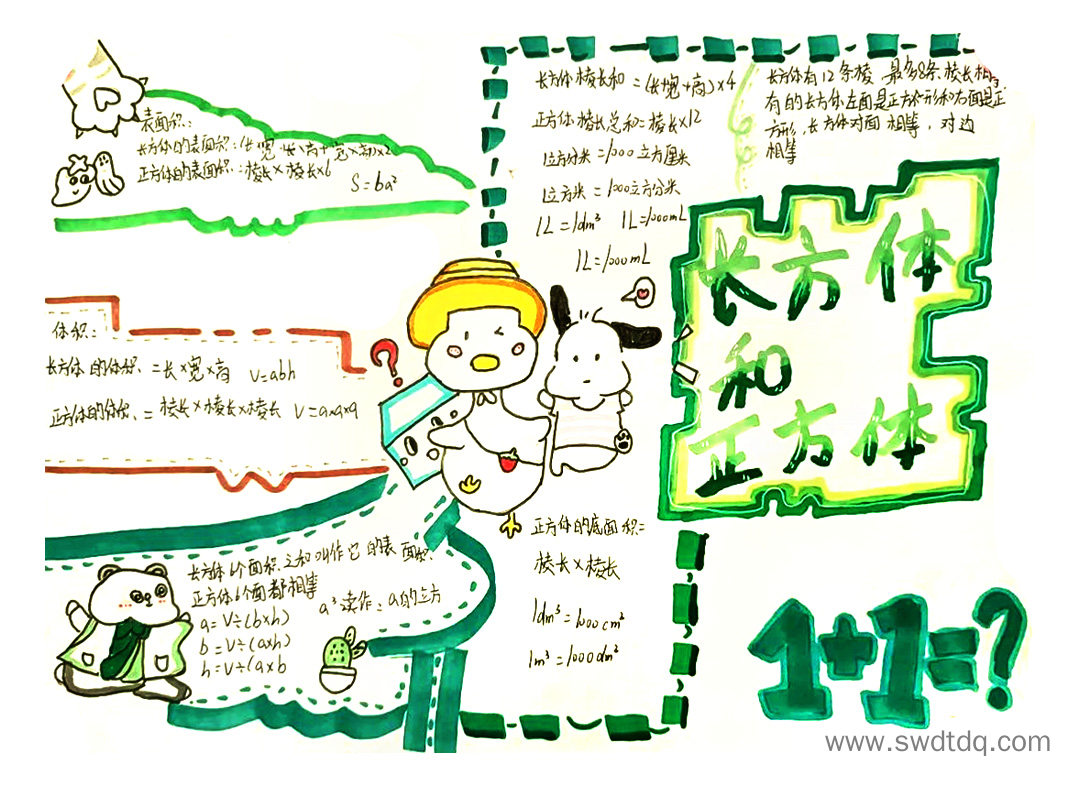 表面积:
长方体的表面积:(长×宽+长×高+宽×高)×2
正方体的表面积=棱长×棱长×6
S=6a²
体积:
长方体的体积.=长×宽×高 V=abh
正方体的体积.=棱长×棱长×棱长 V=a×a×a
长方体6个面积之和叫作它的表面积.
正方体6个面都相等
a³读作:a的立方
a=V÷(b×h)
b=V÷(a×h)
h=V÷(a×b
长方体棱长和=(长+宽+高)×4
正方体棱长总和=棱长×12
1立方分米=1000立方厘米
1立方米=1000立方分米
1L=1dm³ 1L=1000mL
1L=1000mL
正方体的底面积=
棱长×棱长
1dm³=1000cm³
1m³=1000dm³
长方体有12条棱 最多8条棱长相等
有的长方体左面是正方形和右面是正
方形,长方体对面相等,对边
相等
长方体
和
正方体
1+1=?
www.swdtdq.com